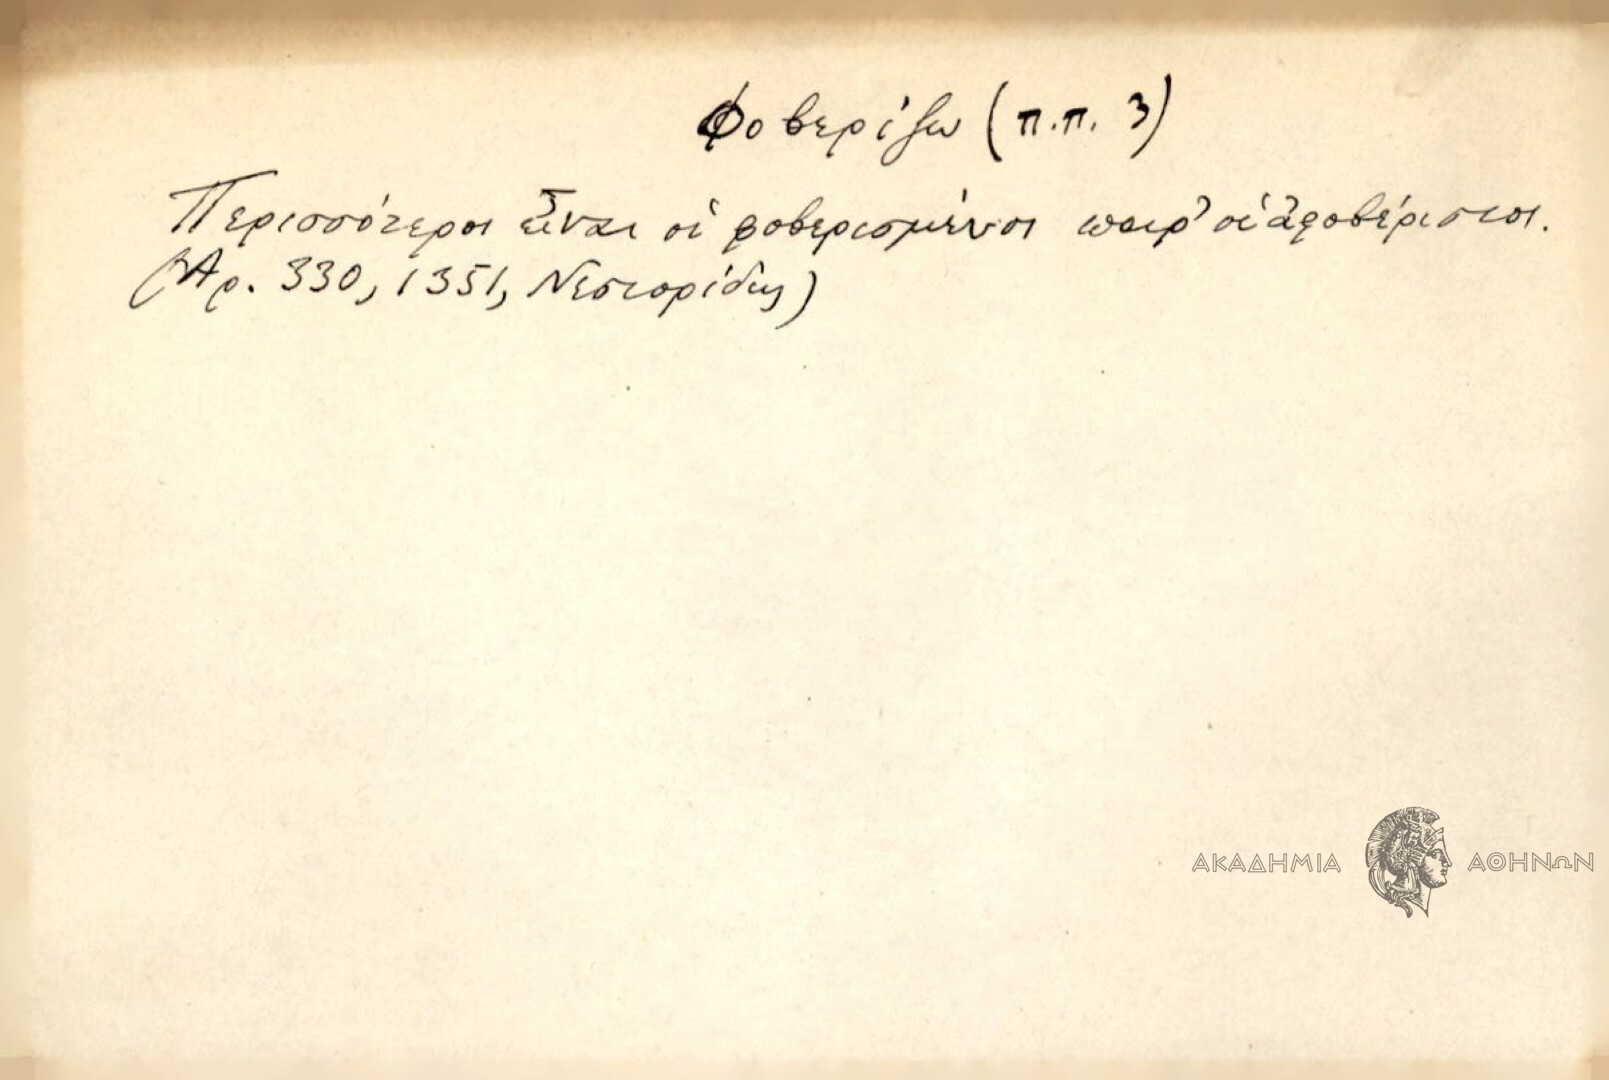 Φοβερίζω (π.π. 3)
Περισσότεροι εἶναι οἱ φοβερισμένοι παρ' οἱ ἀφοβέριστοι.
(Ἀρ. 330, 1351, Νεστορίδης)
ΑΚΑΔΗΜΙΑ ΑΘΗΝΩΝ